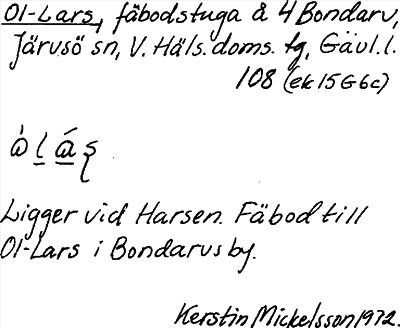 Ol-Lars, fäbodstuga å 4 Bondarv,
Järvsö sn, V. Häls. doms. tg, Gävl. l.
108 (ek 15 G 6 c)
Ligger vid Harsen. Fäbod till
Ol-Lars i Bondarvs by.
Kerstin Mickelsson 1972.